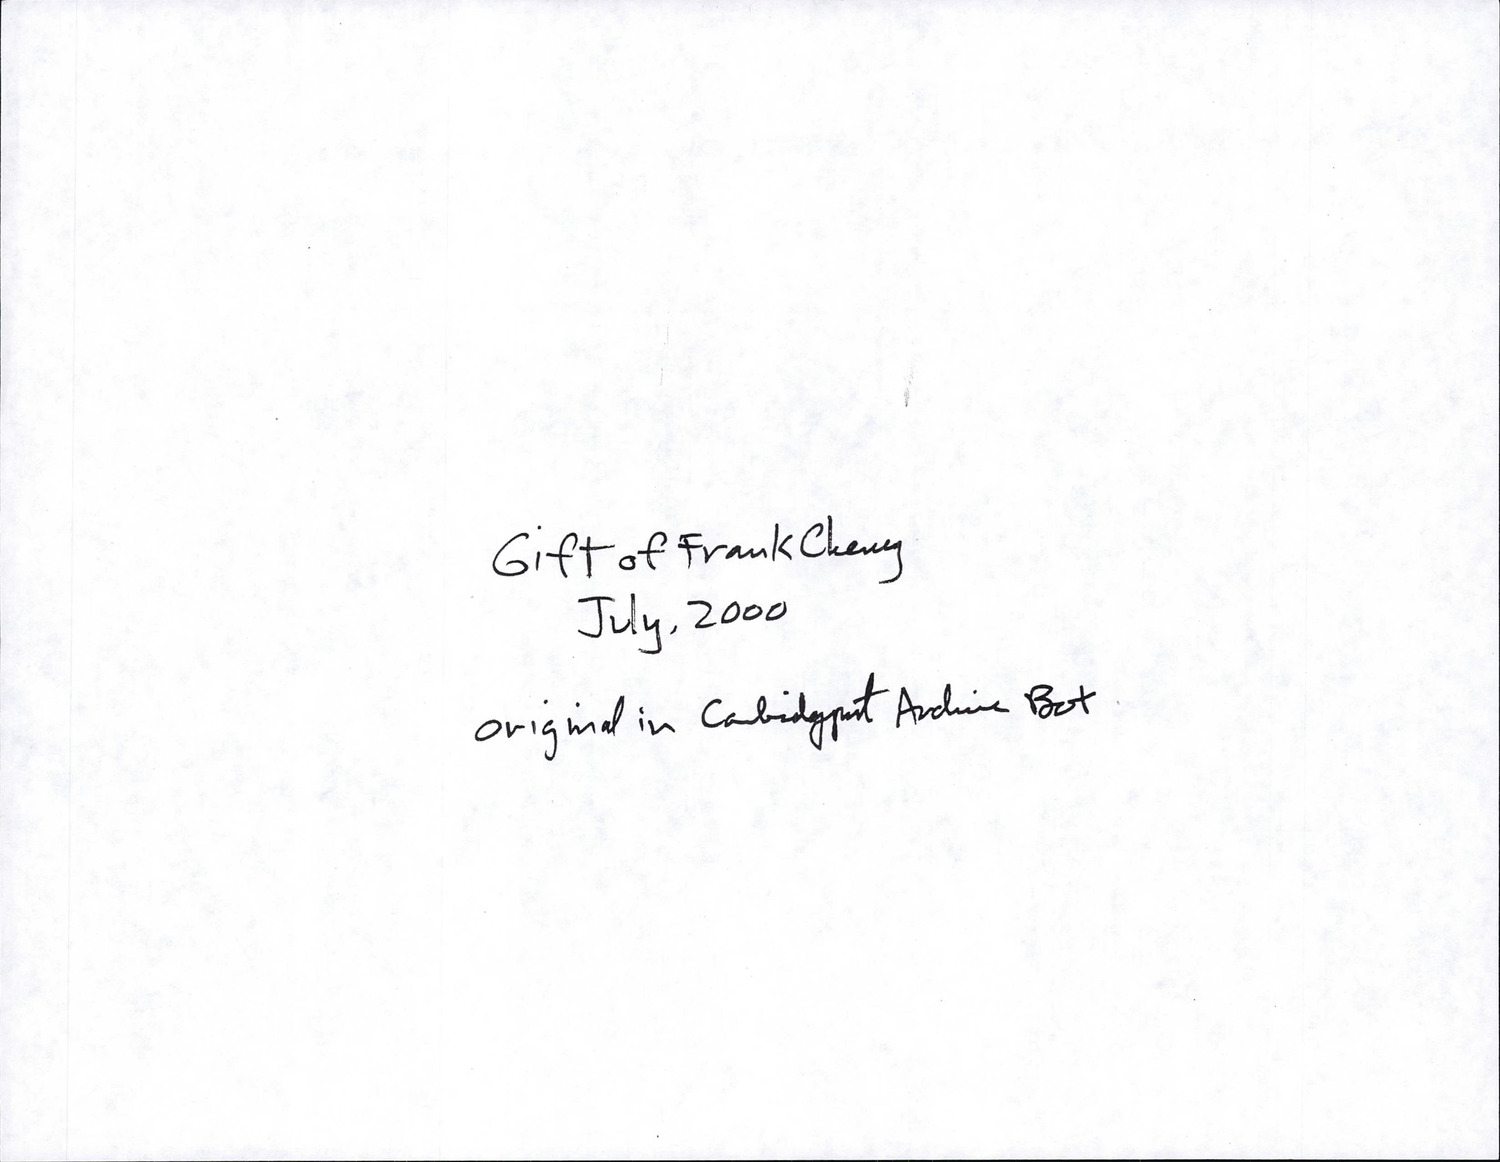 Gift of Frank Cheney
July, 2000
original in Cambridgeport Archive Box